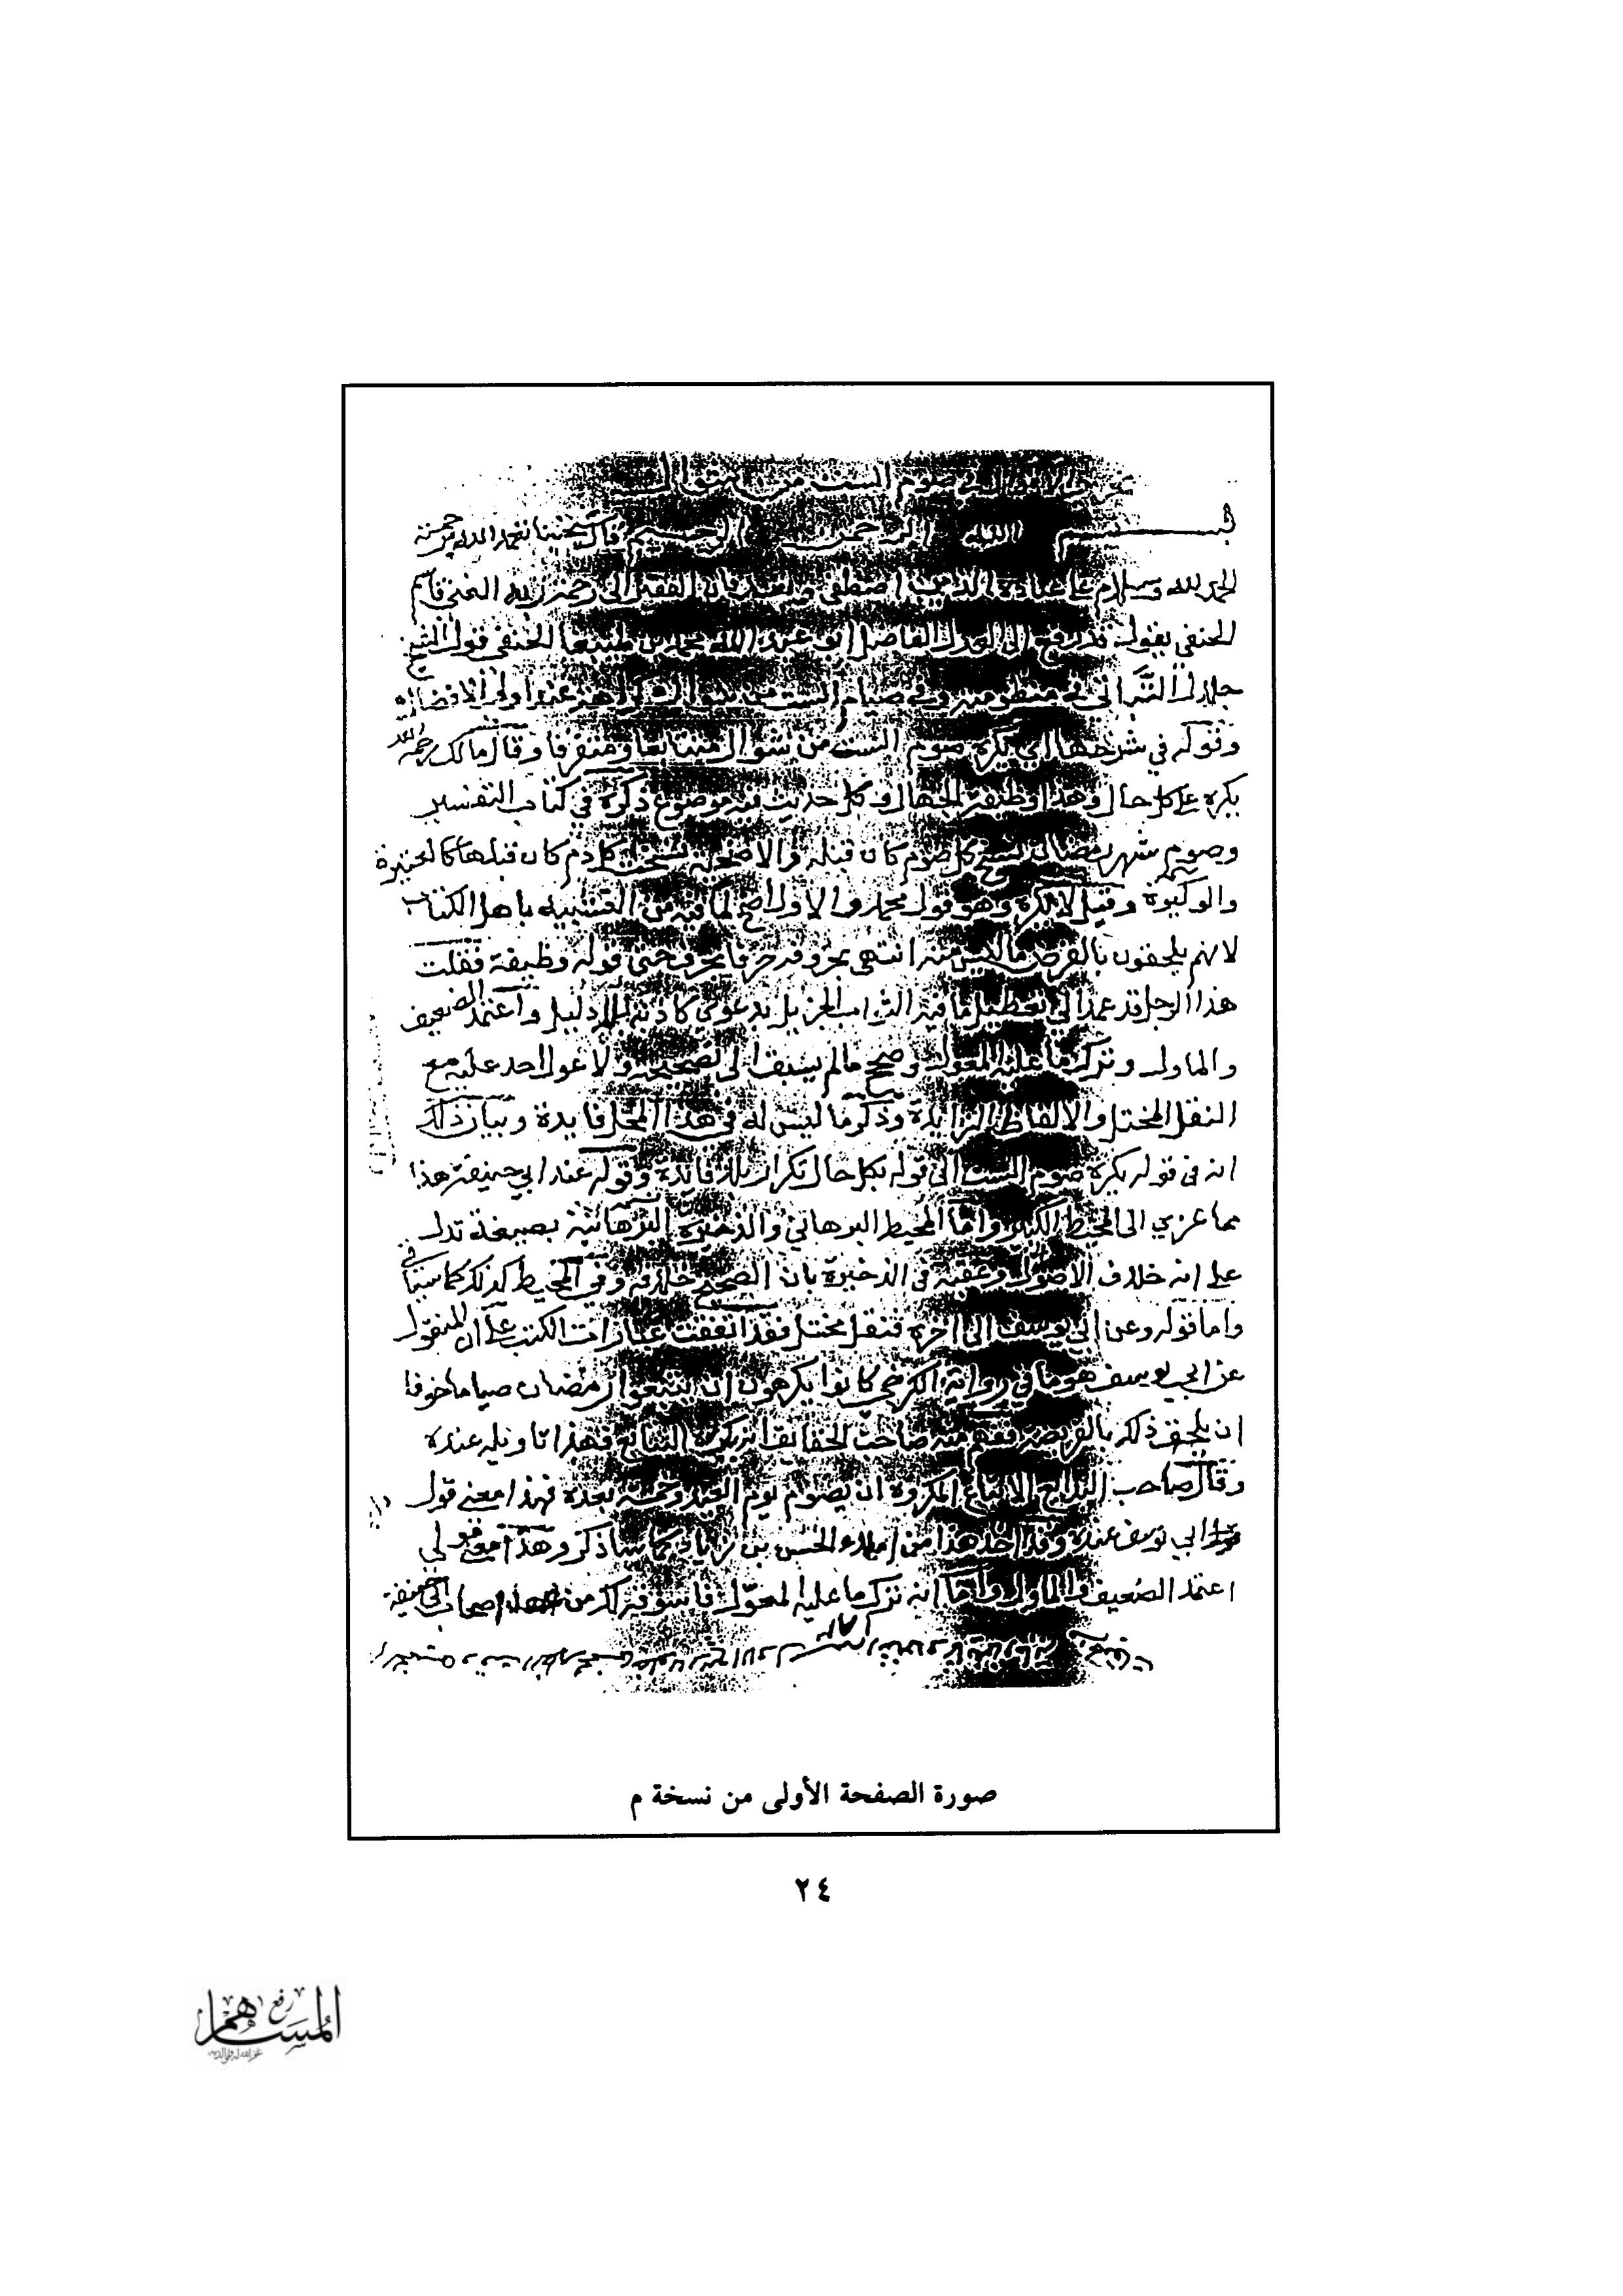 صوم الست من
بسم الله الرحمن الرحيم قال شيخنا تغمده الله برحمته
الحمد لله وسلام على عباده الذين اصطفى وبعد فان الفقير الى رحمة ربه الغني قاسم
الحنفي يقول قد رفع الي الولد الفاضل ابو عبد الله محمد بن الحنفي قول الشيخ
جلال التباني في منظومته وفي صيام الست من شوال
وقوله في شرحها اي يكره صوم الست من شوال متتابعا ومتفرقا وقال مالك رحمه الله
يكره على كل حال وهذا وظيفة الجهال وكل حديث فيه موضوع ذكره في كتاب التفسير
وصوم شهر رمضان نسخ كل صوم كان قبله والاضحية نسخت كل دم كان قبلها كالعتيرة
والوكيرة وقيل لا يكره وهو قول محمد والاول اصح لما فيه من التشبيه باهل الكتاب
لانهم يلحقون بالفرض ما ليس منه انتهى بحروفه حرفا بحرف حتى قوله وظيفة فقلت
هذا الرجل قد عمد الى تعطيل ما فيه الثواب الجزيل بدعوى كاذبة بلا دليل واعتمد الضعيف
والماول وترك ما عليه المعول وصحح ما لم يسبق الى تصحيحه ولا عول احد عليه مع
النقل المختل والالفاظ الزايدة وذكر ما ليس له في هذا المحل فايدة وبيان ذلك
ان في قوله يكره صوم الست الى قوله بكل حال تكرار بلا فائدة وقوله عند ابي حنيفة هذا
مما عزي الى المحيط واما المحيط البرهاني والذخيرة البرهانية بصيغة تدل
على انه خلاف الاصول وعقبه في الذخيرة بان الصحيح خلافه وفي المحيط كذلك كما سياتي
واما قوله وعن ابي يوسف الى اخره فنقل مختل فقد اتفقت عبارات الكتب على ان المنقول
عن ابي يوسف هو ما في رواية الكرخي كانوا يكرهون ان يتبعوا رمضان صياما خوفا
ان يلحق ذلك بالفريضة ففهم منه صاحب الحقائق انه يكره التتابع فهذا تاويله عنده
وقال صاحب البدائع الاتباع المكروه ان يصوم يوم العيد وخمسة بعده فهذا معنى قول
ابي يوسف عنده وقد اخذ هذا من املاء الحسن بن زياد كما ساذكر وهذا معنى قولي
اعتمد الضعيف والماول واما انه ترك ما عليه المعول فاسوقه لك من اصحاب ابي حنيفة
صورة الصفحة الأولى من نسخة م
٢٤
رفع
المساهم
غفر الله له ولوالديه